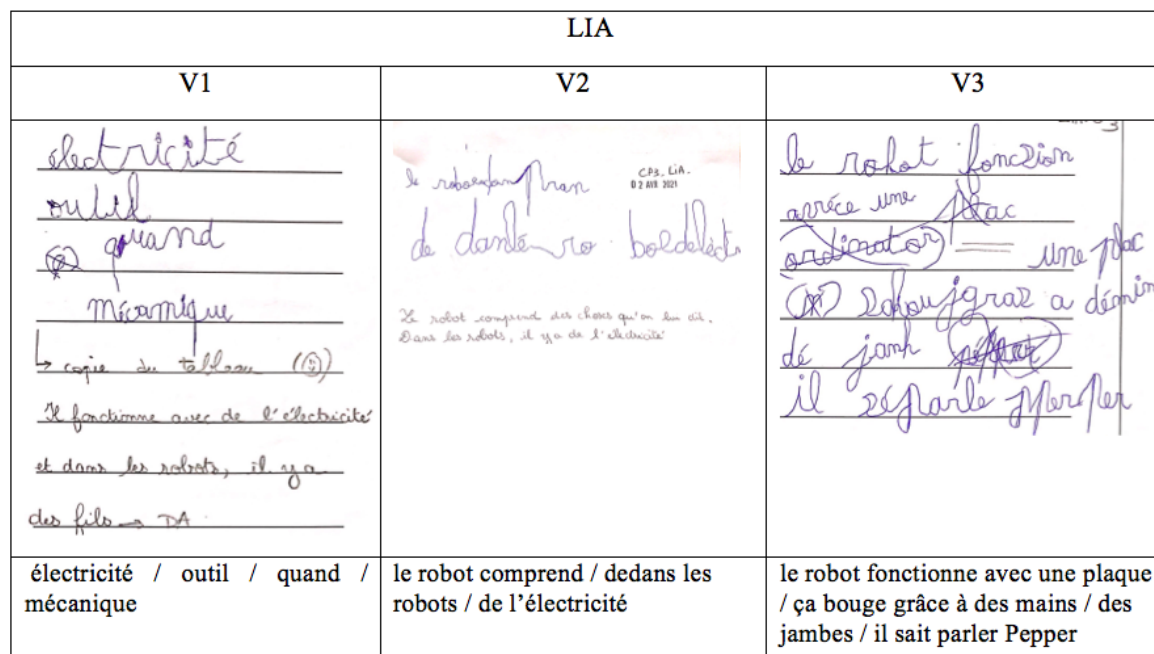 LIA
V1
V2
V3
électricité
outil
quand
mécanique
↳ copie du tableau (☺)
Il fonctionne avec de l'électricité
et dans les robots, il y a
des fils → DA
le
CP3. LiA.
02 AVR 2021
de danlé ro boldelèct
Le robot comprend des choses qu'on lui dit.
Dans les robots, il y a de l'électricité
le robot fonczion
avréce une plac
ordinator une plac
a démin
dé janh
il zéparle pperper
électricité / outil / quand / mécanique
le robot comprend / dedans les
robots / de l'électricité
le robot fonctionne avec une plaque
/ ça bouge grâce à des mains / des
jambes / il sait parler Pepper